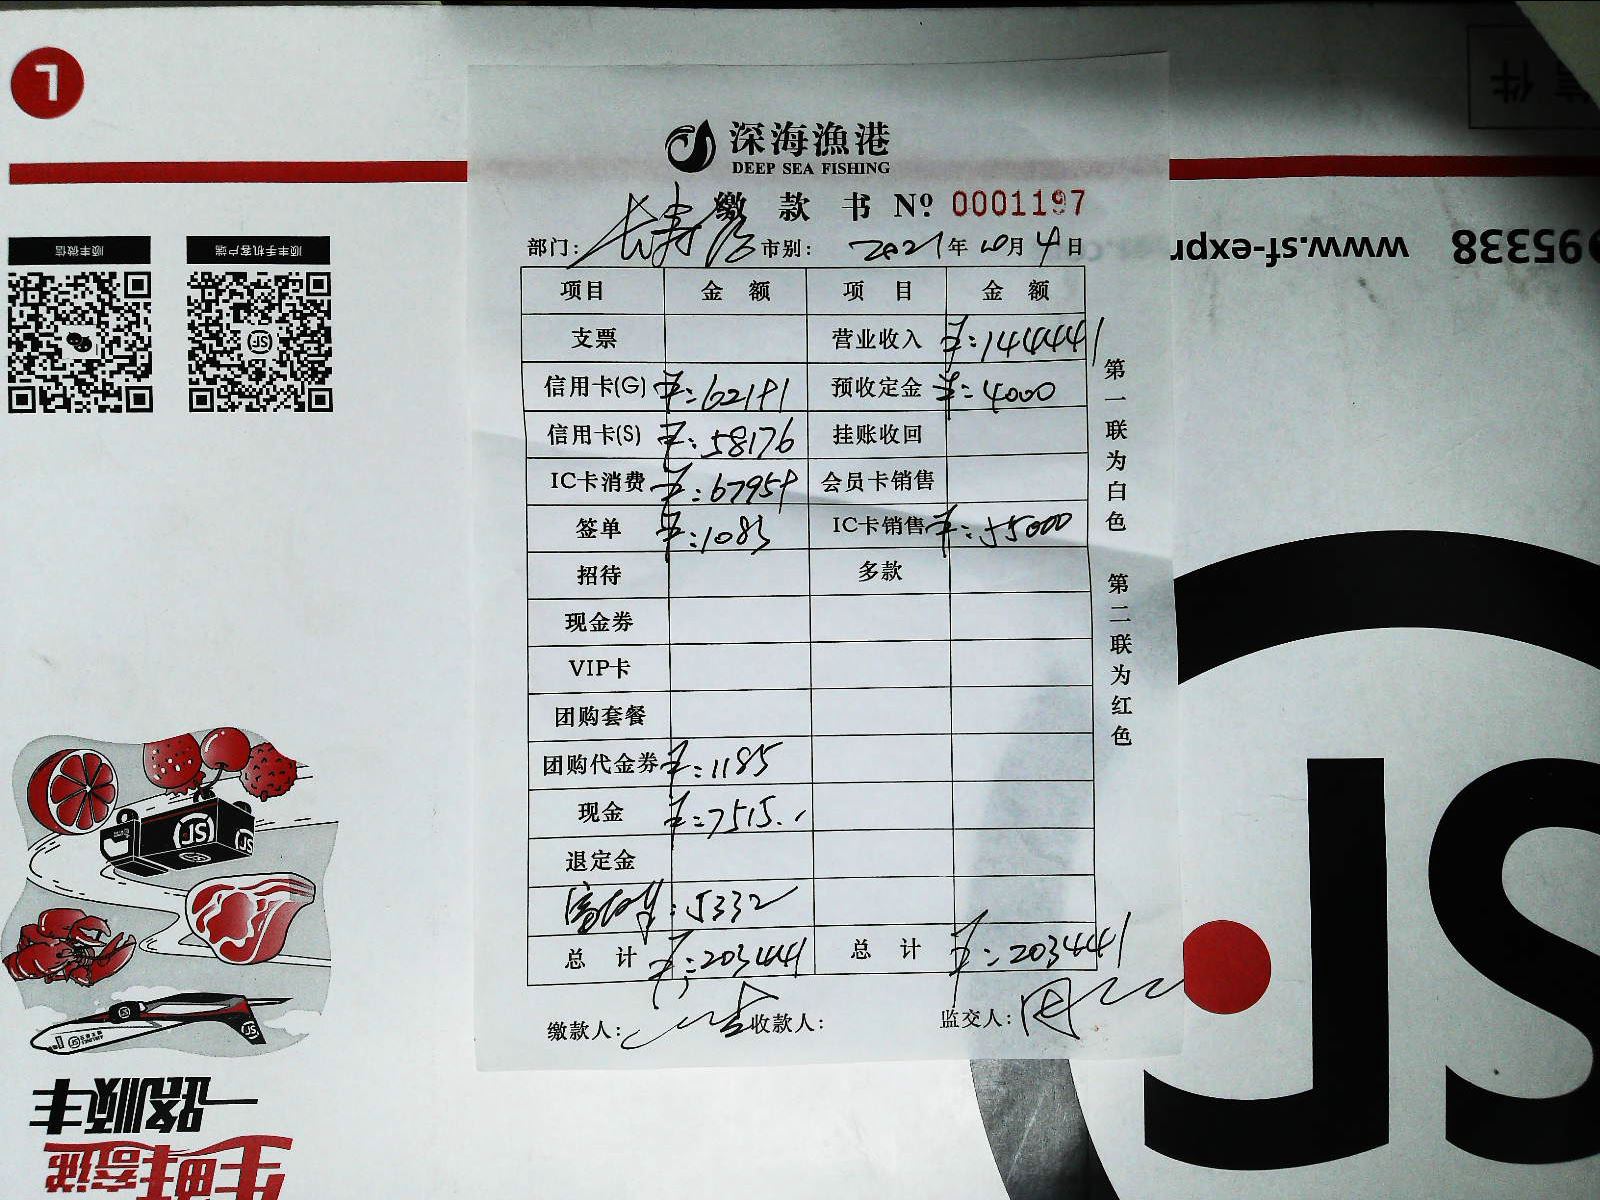 深海漁港
DEEP SEA FISHING
缴款书 Nº 0001197
部门: 市别: 2021年10月4日
项目 金额 项目 金额
支票 营业收入 ¥:144441
信用卡(G) 预收定金 ¥:4000
信用卡(S) ¥:58176 挂账收回
IC卡消费 会员卡销售
签单 ¥:1083 IC卡销售 ¥:55000
招待 多款
现金券
VIP卡
团购套餐
团购代金券 ¥:1185
现金 ¥:7515.
退定金
:5332
总计 ¥:203441 总计 ¥:203441
缴款人: 收款人: 监交人:
第一联为白色 第二联为红色
顺丰微信
顺丰手机客户端
www.sf-expr
95338
件
SF
一路顺丰
生鲜寄递